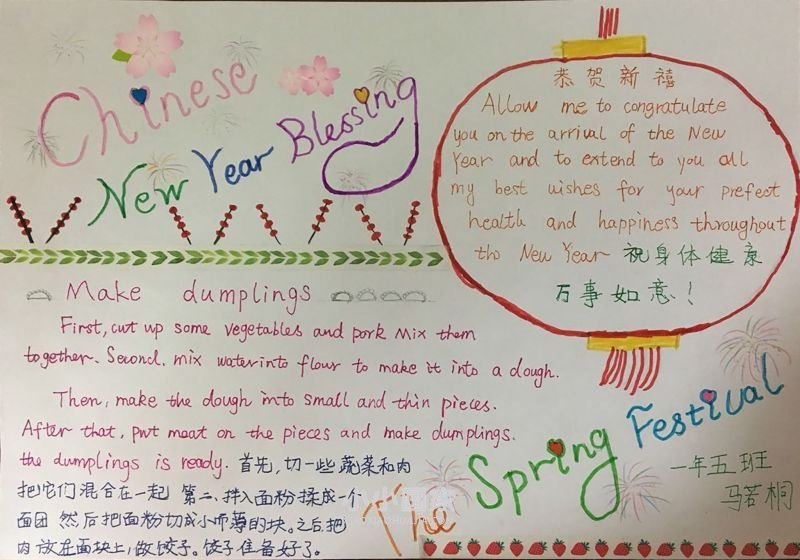 Chinese
New Year Blessing
恭贺新禧
Allow me to congratulate
you on the arrival of the New
Year and to extend to you all
my best wishes for your prefect
health and happiness throughout
the New Year 祝身体健康
万事如意！
Make dumplings
First, cut up some vegetables and pork Mix them
together. Second. mix water into flour to make it into a dough.
Then, make the dough into small and thin pieces.
After that, put meat on the pieces and make dumplings.
the dumplings is ready. 首先,切一些蔬菜和肉
把它们混合在一起 第二、拌入面粉揉成一个
面团 然后把面粉切成小而薄的块。之后把
肉放在面块上,做饺子。饺子准备好了。
The Spring Festival
一年五班
马若桐